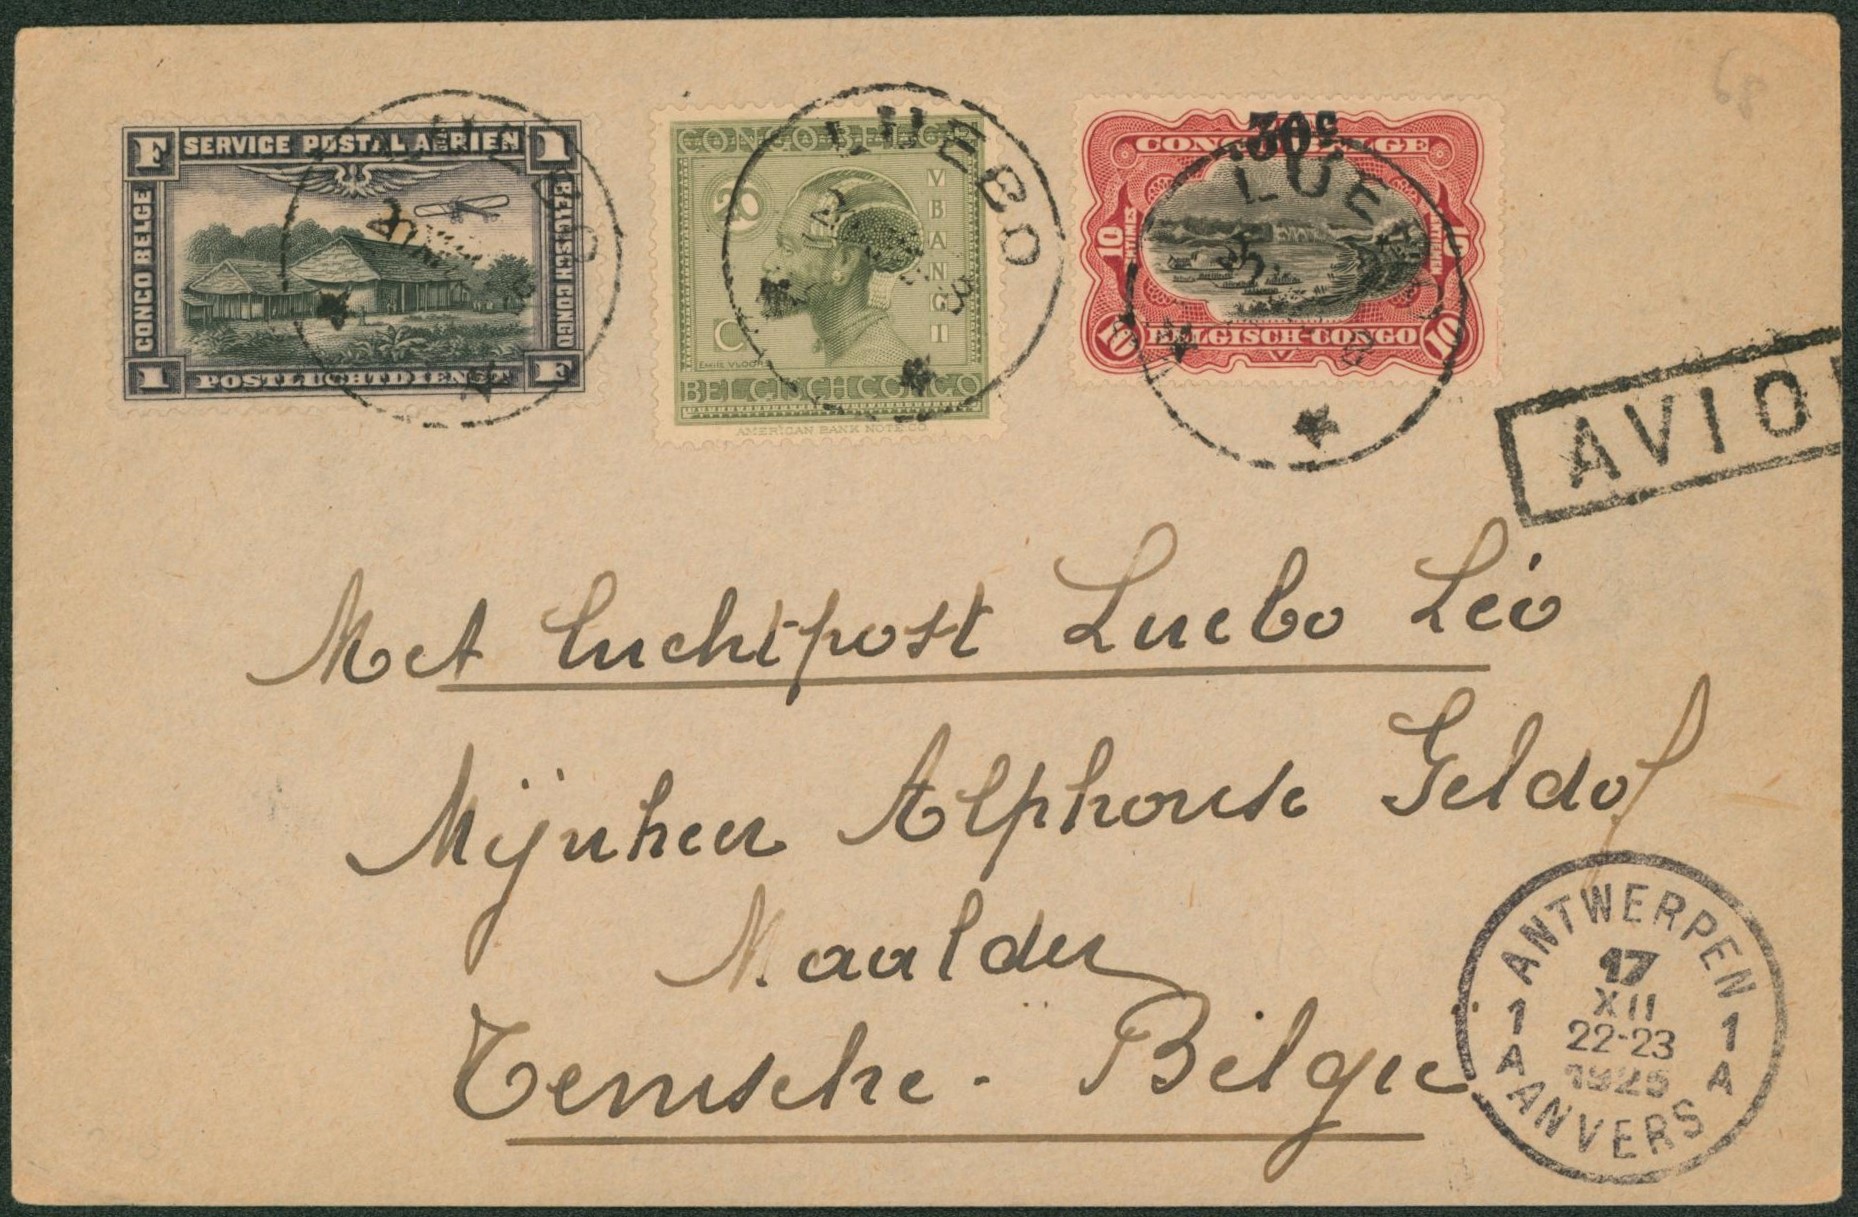 68
F SERVICE POSTAL AÉRIEN 1
CONGO BELGE
BELGISCH CONGO
1 POSTLUCHTDIENST F
CONGO BELGE
20
UBANGH
C
EMILE VLOORS
BELGISCH CONGO
AMERICAN BANK NOTE CO.
30c
CONGO BELGE
10 CENTIMES
10 CENTIEMEN
10 BELGISCH-CONGO 10
LUEBO
LUEBO
LUEBO
AVIO
Met luchtpost Luebo Léo
Mijnheer Alphonse Geldof
Maalder
Temsche - België
ANTWERPEN
17
XII
22-23
1925
1 A
1 A
ANVERS